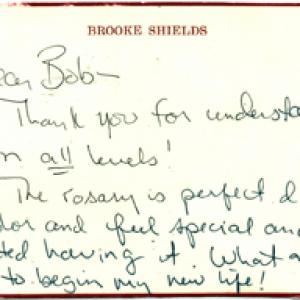 BROOKE SHIELDS
ear Bob-
Thank you for understa
n all levels!
The rosary is perfect d
dor and feel special and
ted having it. What a
to begin my new life!